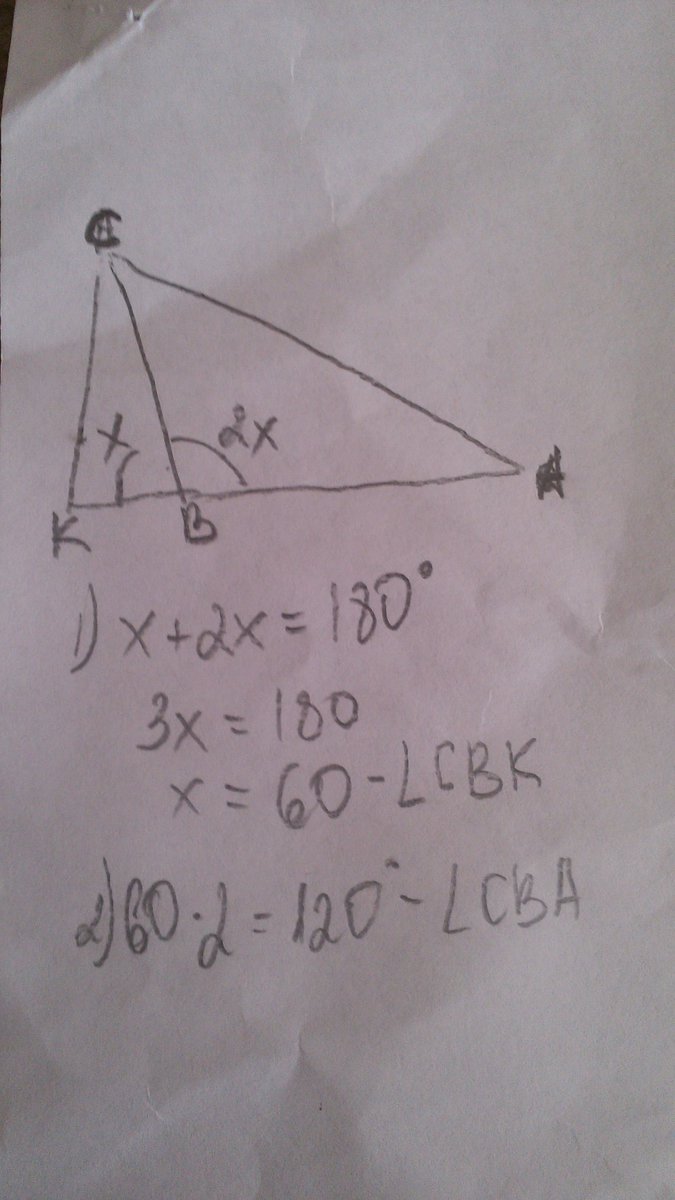 C
x
2x
K
B
A
1) x+2x=180°
3x=180
x=60-∠CBK
2) 60·2=120°-∠CBA